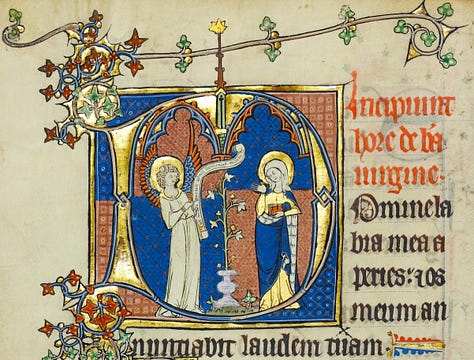 Incipiunt
hore de bā
uirgine.
Domine la
bia mea a
peries: ⁊ os
meum an
nuntiabit laudem tuam.